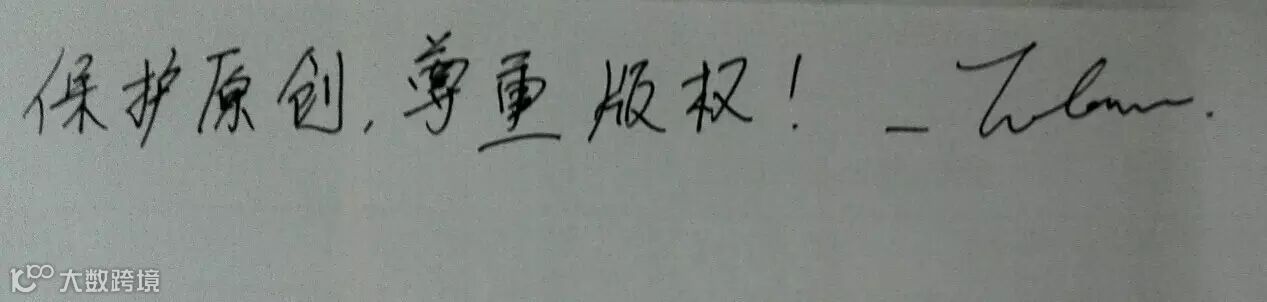 保护原创,尊重版权!
大数跨境